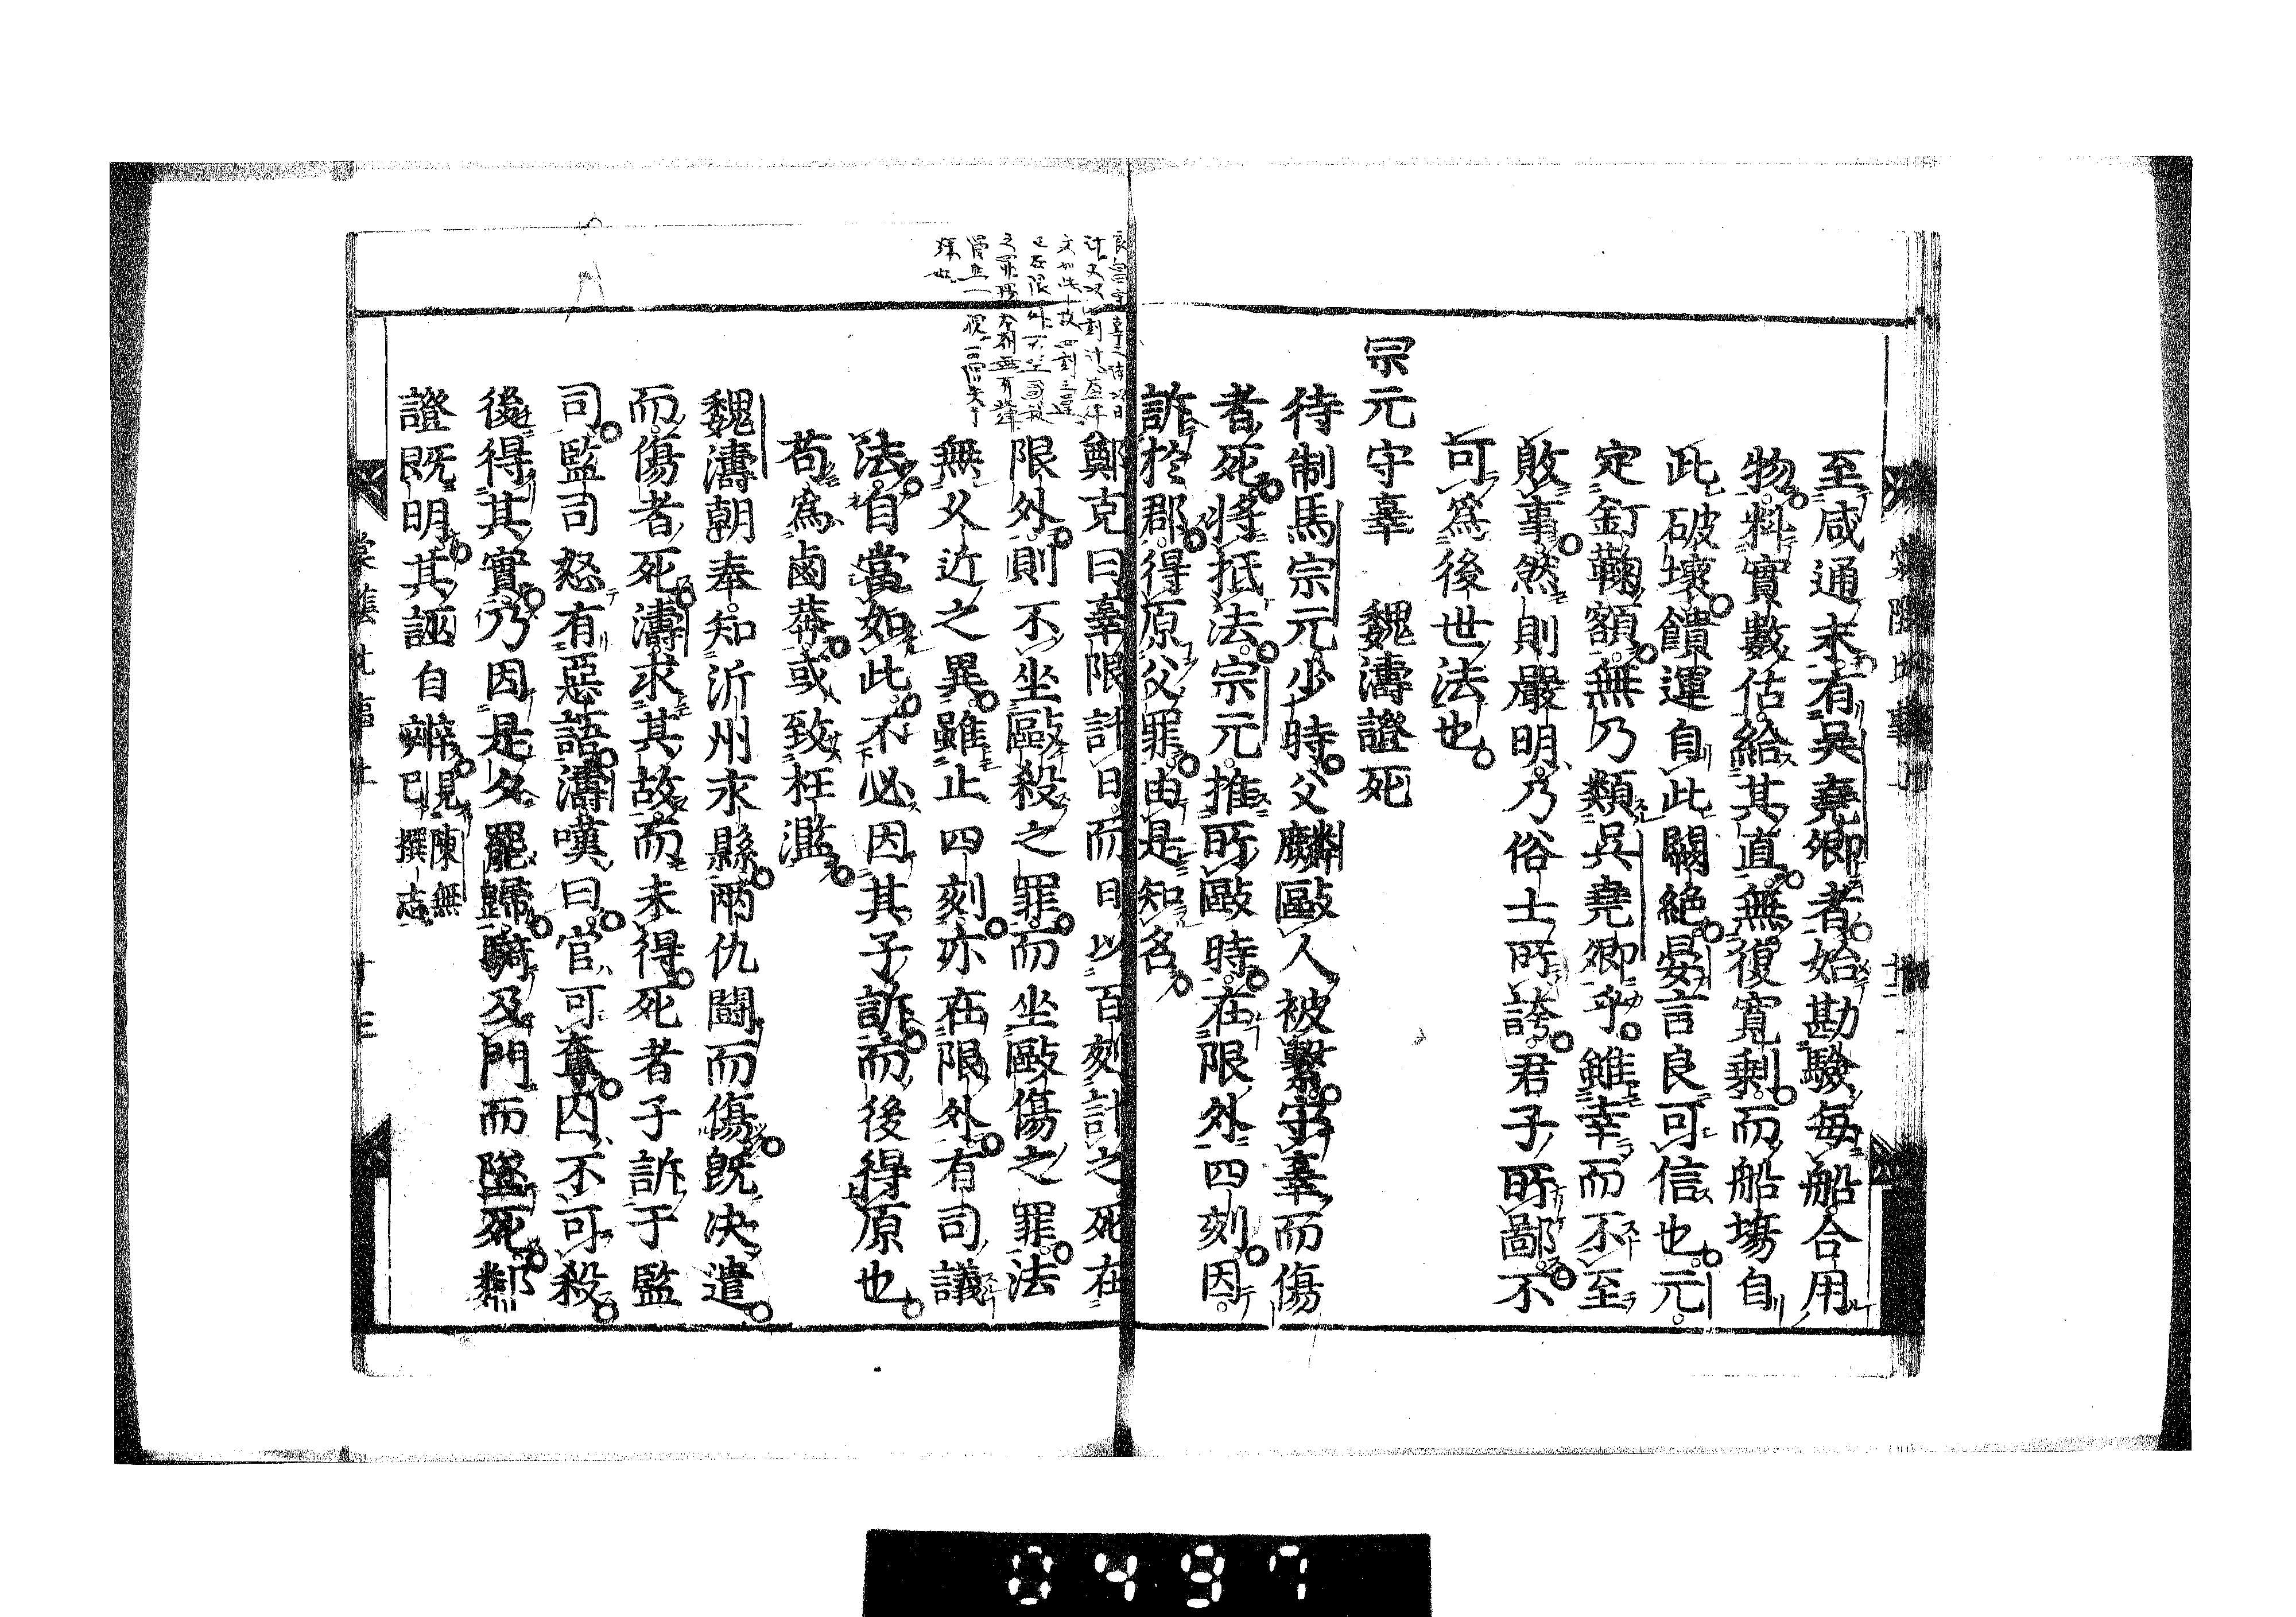 至咸通末有吳堯卿者始勘驗每船合用
物料實數估給其直無復寬剩而船場自
此破壞饋運自此闕絶晏言良可信也元
定釘鞠額無乃類吳堯卿乎雖幸而不至
敗事然則嚴明乃俗士所誇君子所鄙不
可爲後世法也
宗元守辜　魏濤證死
待制馬宗元少時父麟毆人被繫守辜而傷
者死將抵法宗元推所毆時在限外四刻因
訴於郡得原父罪由是知名
鄭克曰辜限計日而日以百刻計之死在
限外則不坐毆殺之罪而坐毆傷之罪法
無久近之異雖止四刻亦在限外有司議
法自當如此不必因其子訴而後得原也
苟爲鹵莽或致枉濫
魏濤朝奉知沂州永縣兩仇鬪而傷既決遣
而傷者死濤求其故而未得死者子訴于監
司監司怒有惡語濤嘆曰官可奪囚不可殺
後得其實乃因是夕罷歸騎及門而墜死鄰
證既明其誣自辨見陳無
已撰志
0497